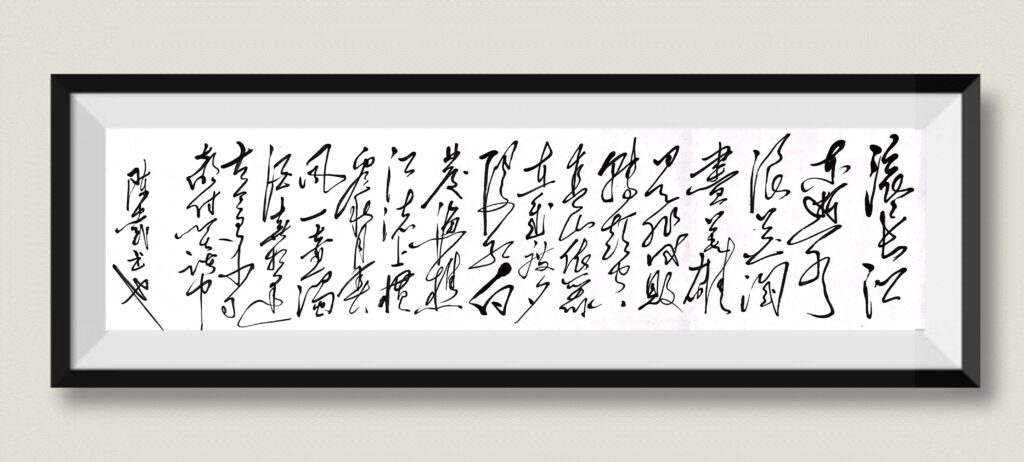 滚滚长江
东逝水
浪花淘
盡英雄
是非成败
转头空
青山依旧
在几度夕
阳红白
发渔樵
江渚上惯
看秋月春
风一壶浊
酒喜相逢
古今多少事
都付笑谈中
陈